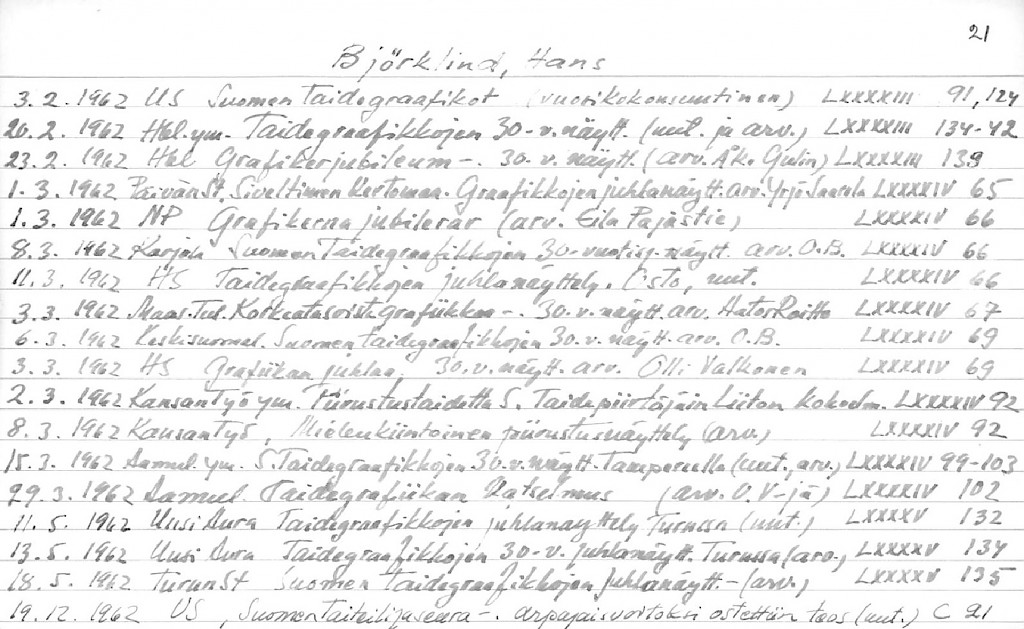 21
Björklind, Hans
3.2.1962 US Suomen Taidegraafikot (vuosikokousuutinen) LXXXXIII 91, 124
20.2.1962 Hbl ym. Taidegraafikkojen 30-v.näytt. (uut. ja arv.) LXXXXIII 134-42
23.2.1962 Hbl Grafikerjubileum -. 30.v.näytt. (arv. Åke Gulin) LXXXXIII 139
1.3.1962 PäivänS. Siveltimen kertomaa. Graafikkojen juhlanäytt. arv. Yrjö Saarela LXXXXIV 65
1.3.1962 NP Grafikerna jubilerar (arv. Eila Pajastie) LXXXXIV 66
8.3.1962 Karjala Suomen Taidegraafikkojen 30-vuotisnäytt. arv. O.B. LXXXXIV 66
11.3.1962 HS Taidegraafikkojen juhlanäyttely. Osto, uut. LXXXXIV 66
3.3.1962 Maas.Tul. Korkeatasoista grafiikkaa -. 30.v.näytt. arv. LXXXXIV 67
6.3.1962 Keskisuomal. Suomen taidegraafikkojen 30.v.näytt. arv. O.B. LXXXXIV 69
3.3.1962 HS Grafiikan juhlaa. 30.v.näytt. arv. Olli Valkonen LXXXXIV 69
2.3.1962 KansanTyö ym. Piirustustaidetta S. Taidepiirtäjäin Liiton kokoelm. LXXXXIV 92
8.3.1962 KansanTyö, Mielenkiintoinen piirustusnäyttely (arv.) LXXXXIV 92
15.3.1962 Aamul. ym. S.Taidegraafikkojen 30.v.näytt. Tampereella (uut., arv.) LXXXXIV 99-103
29.3.1962 Aamul. Taidegrafiikan Katselmus (arv. O.V-jä) LXXXXIV 102
11.5.1962 Uusi Aura Taidegraafikkojen juhlanäyttely Turussa (uut.) LXXXXV 132
13.5.1962 Uusi Aura Taidegraafikkojen 30-v. juhlanäytt. Turussa (arv.) LXXXXV 134
18.5.1962 TurunSt Suomen Taidegraafikkojen Juhlanäytt. - (arv.) LXXXXV 135
19.12.1962 US, Suomen Taiteilijaseura -. arpajaisvoitoksi ostettiin teos (uut.) C 21